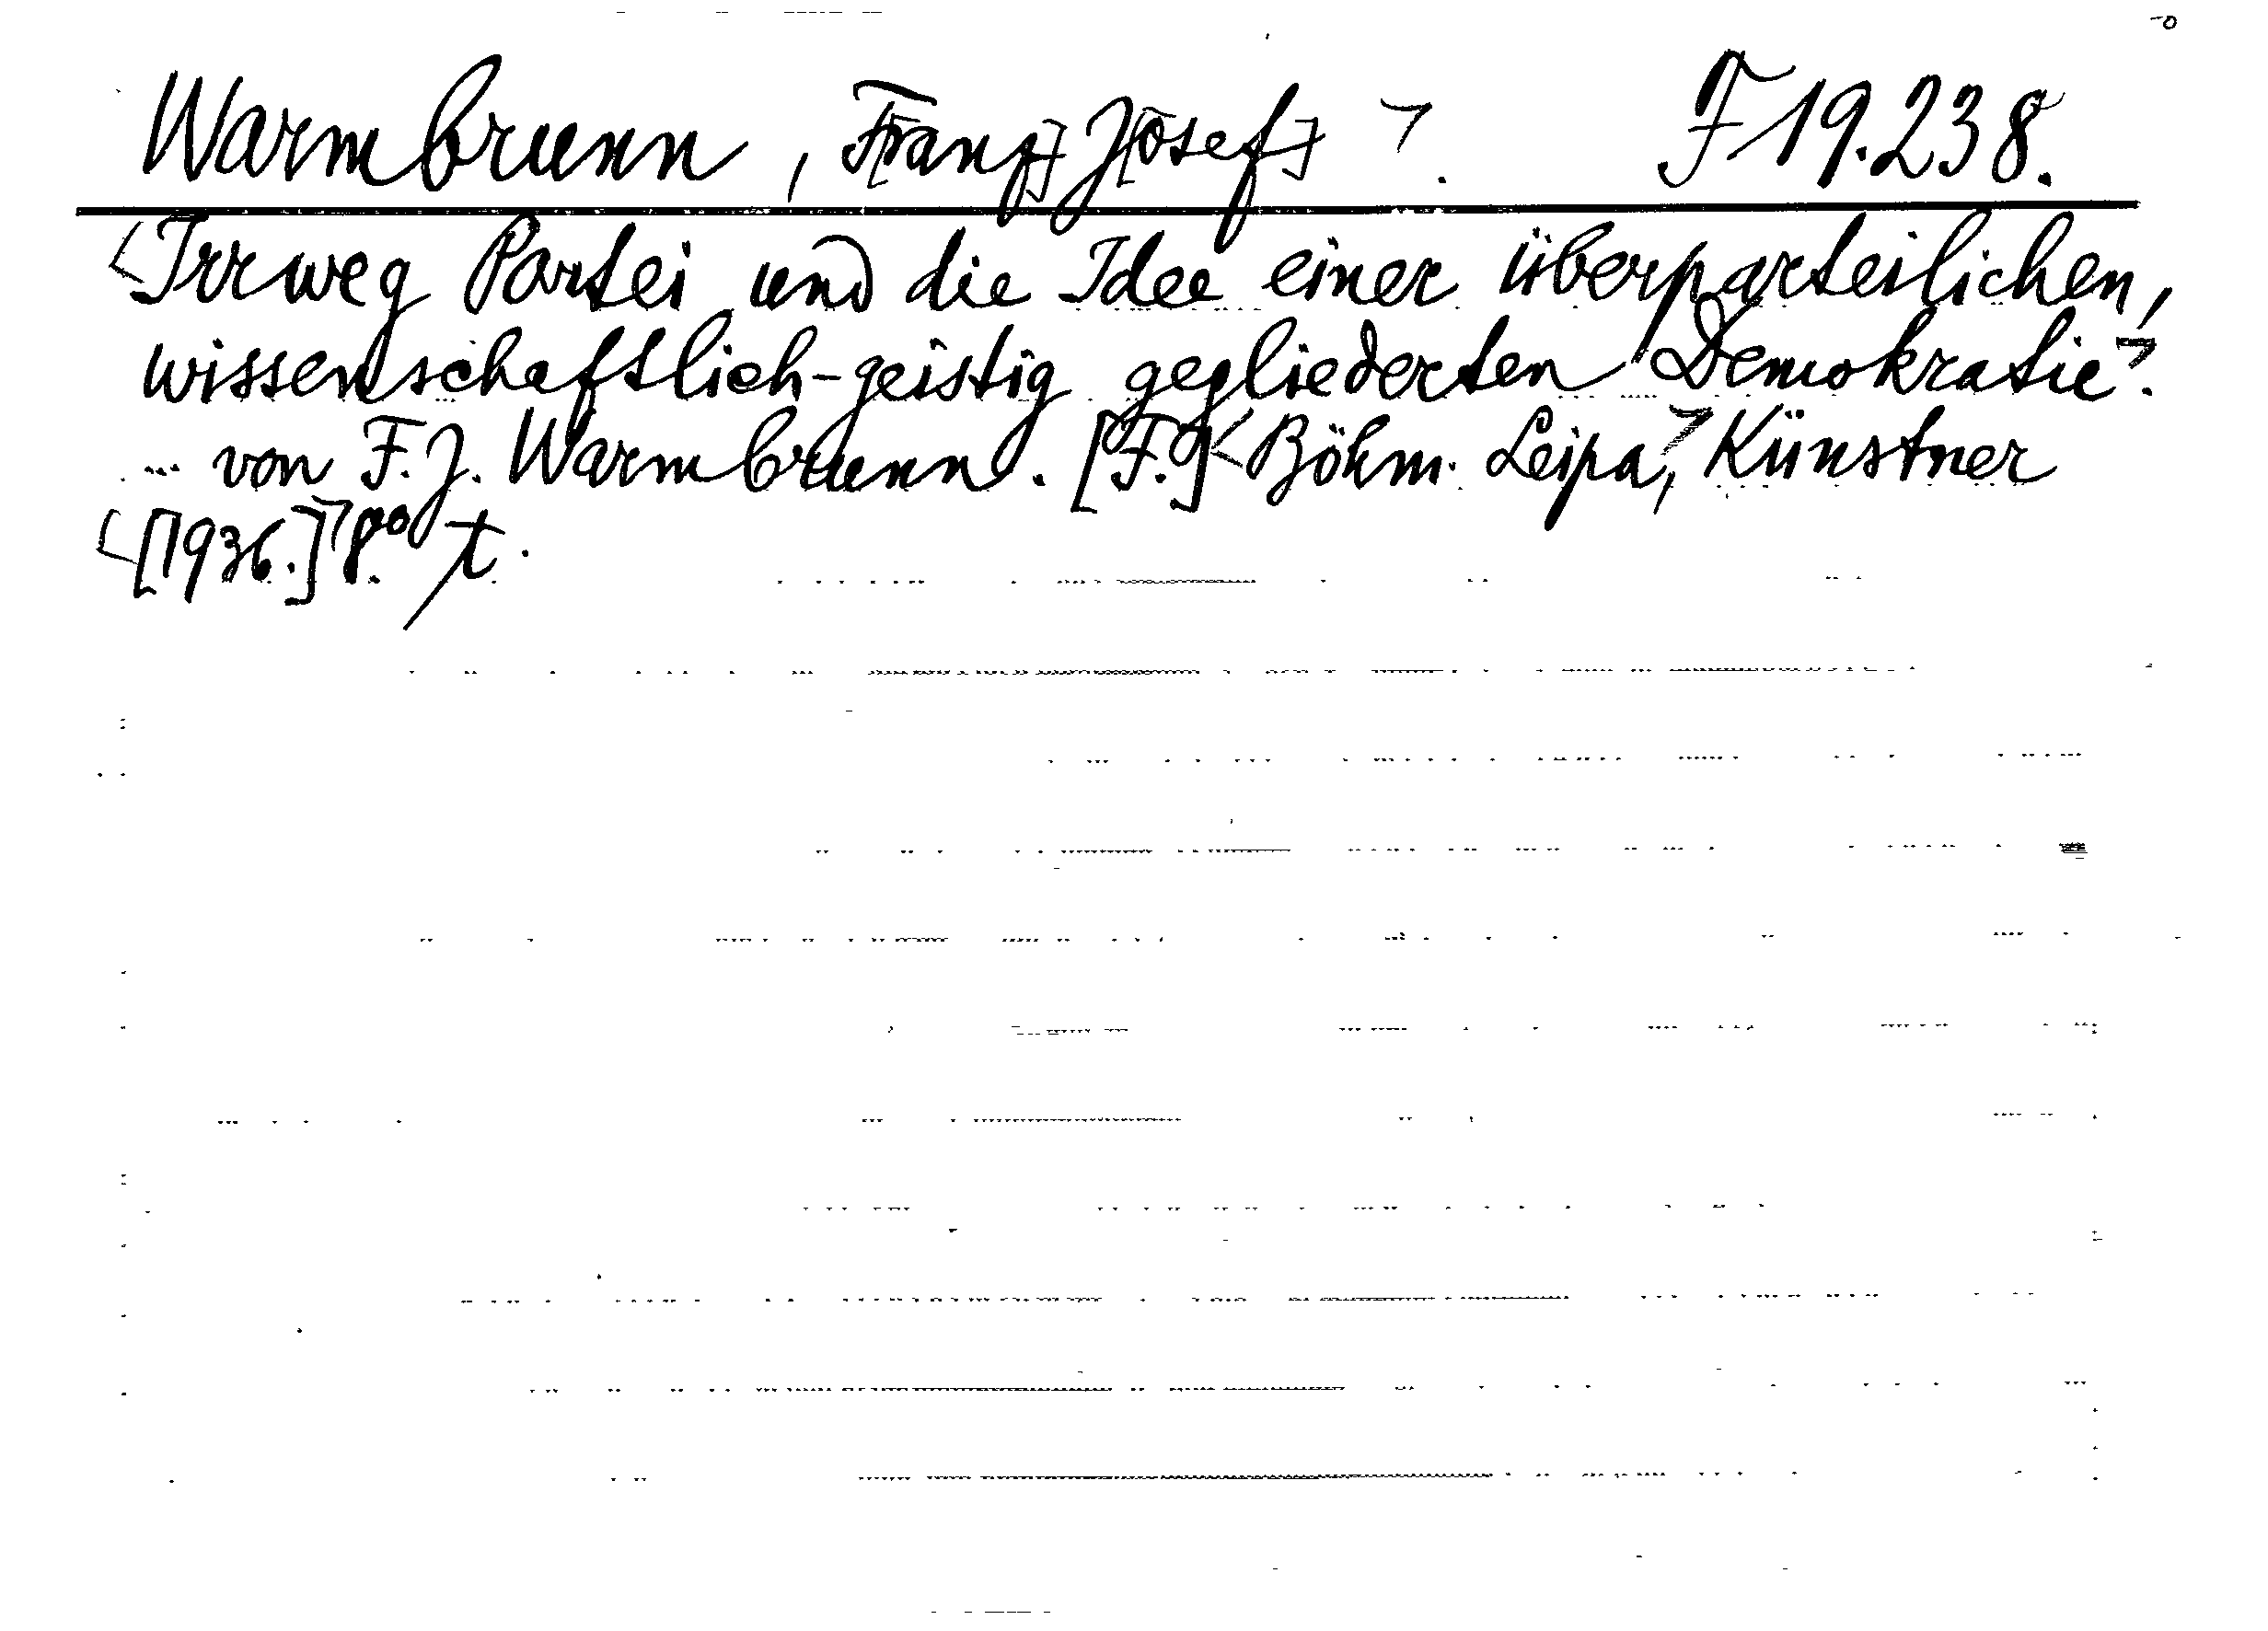 Warmbrunn, F[ranz] J[osef]>. F 19.238.
<Irrweg Partei und die Idee einer überparteilichen,
wissenschaftlich-geistig gegliederten Demokratie>.
... von F. J. Warmbrunn. [F.] <Böhm. Leipa>, Künstner
<[1936.]> 8° t.